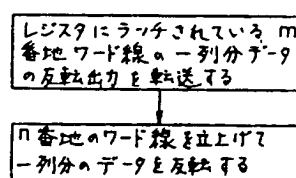 レジスタにラッチされている m
番地ワード線の一列分データ
の反転出力を転送する
n 番地のワード線を立上げて
一列分のデータを反転する